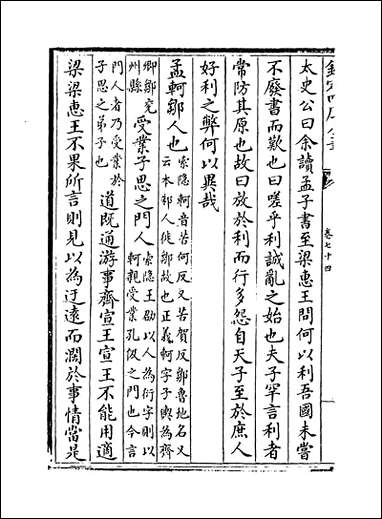 欽定四庫全書
卷七十四
太史公曰余讀孟子書至梁惠王問何以利吾國未嘗
不廢書而歎也曰嗟乎利誠亂之始也夫子罕言利者
常防其原也故曰放於利而行多怨自天子至於庶人
好利之弊何以異哉
孟軻鄒人也索隱軻音苦何反又苦賀反鄒魯地名又云本邾人徙鄒故也正義軻字子輿為齊
卿鄒兖州縣受業子思之門人索隱王劭以人為衍字則以軻親受業孔伋之門也今言
門人者乃受業於子思之弟子也道既通游事齊宣王宣王不能用適
梁梁惠王不果所言則見以為迂遠而濶於事情當是